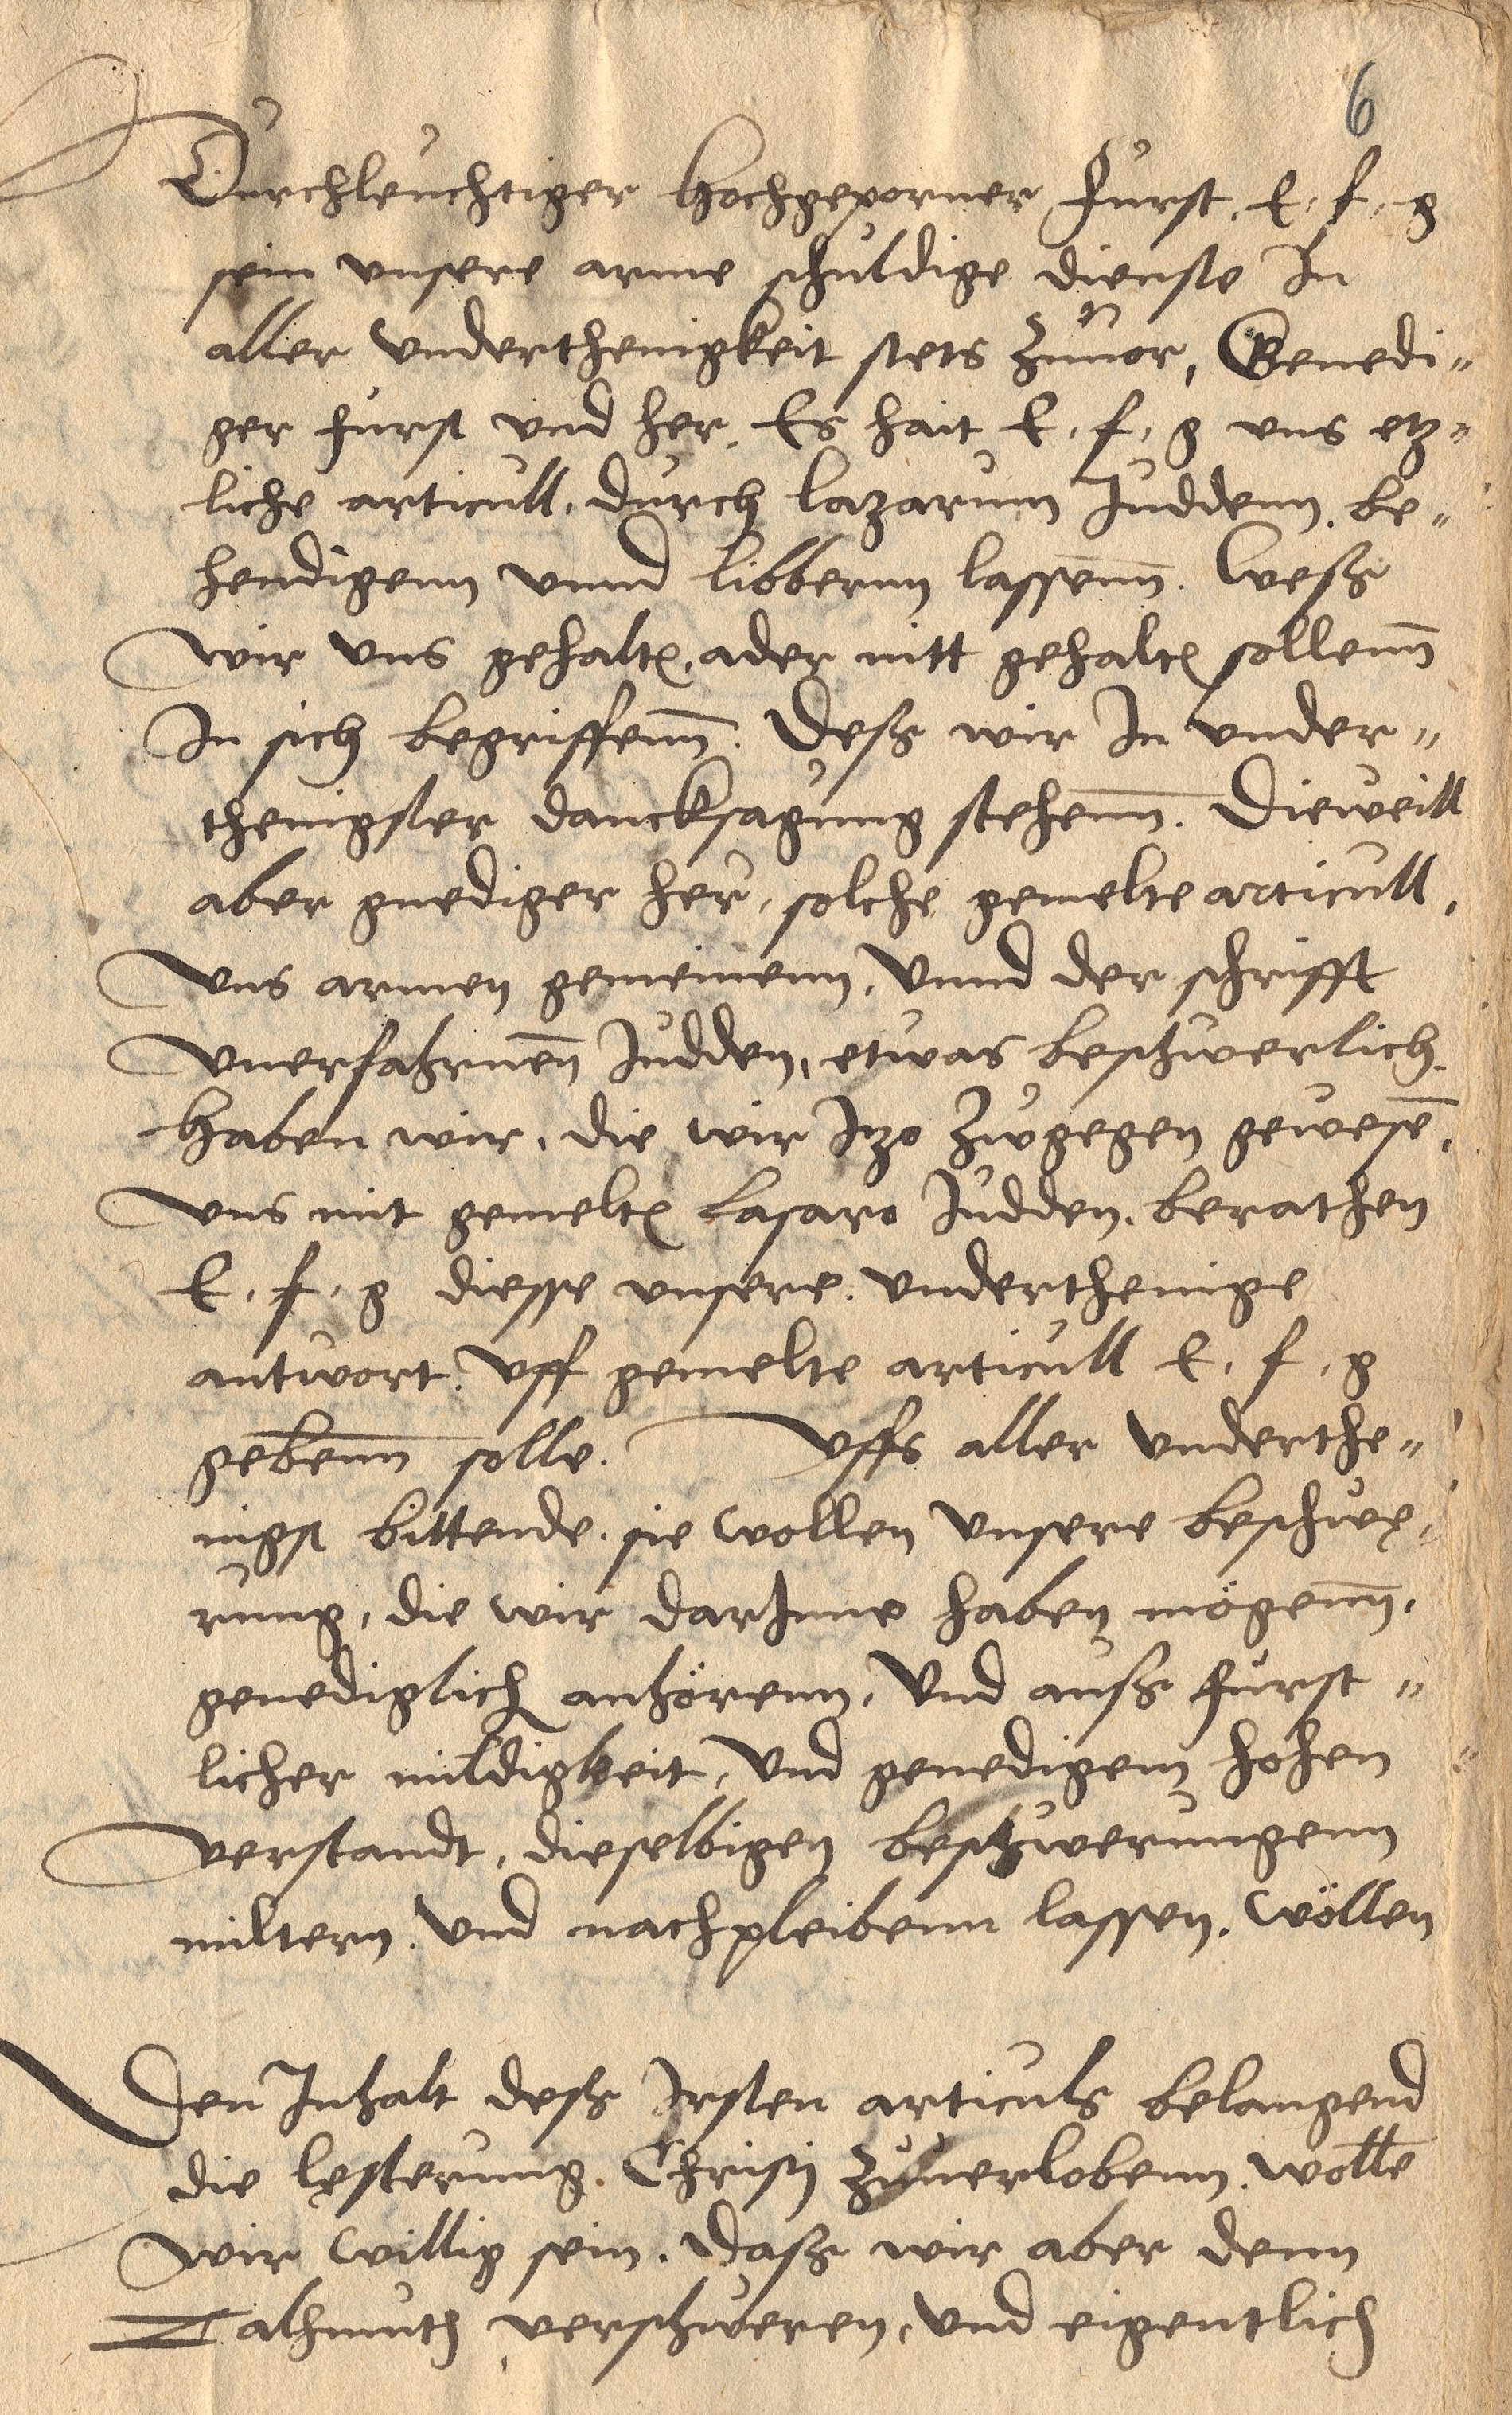 6
Durchleuchtiger Hochgeporner Furst, E, f, g
sein unsere arme schuldige dienste In
aller Underthenigkeit stets Zuuor, Genedi„
ger Furst und her, Es hait E, f, g uns etz„
liche articull, durch Lazarum Juddenn, be„
hendigenn unnd libbernn lassenn. Weß
wir uns gehalten, ader nitt gehalten sollenn
In sich begriffenn. Deß wir In under„
thenigster dancksagung stehenn. Dieweill
aber gnediger her, solche gemelte articull,
uns armen gemeinenn, Unnd der schrifft
Unerfahrnen Judden, etwas beschwerlich
Haben wir, die wir Itzo Zugegen gewesen,
uns mit gemelten Lasaro Judden, berathen
E, f, g diesse unsere underthenige
antwort, Uff gemelte articull E, f, g
gebenn solle. Uffs aller Underthe„
nigst bittende, sie wollen unsere beschwe„
rung, die wir darInne haben mögenn,
genediglich anhörenn, Und auß furst„
licher mildigkeit, Und genedigem hohen
verstandt, dieselbigen beschwerungenn
miltern, Und nachpleibenn lassen. Wöllen
Den Inhalt deß Irsten articuls belangend
die lesterung Christi Zuuerlobenn, wolle
wir willig sein. Daß wir aber denn
Talhmuth verschweren, Und eigentlich